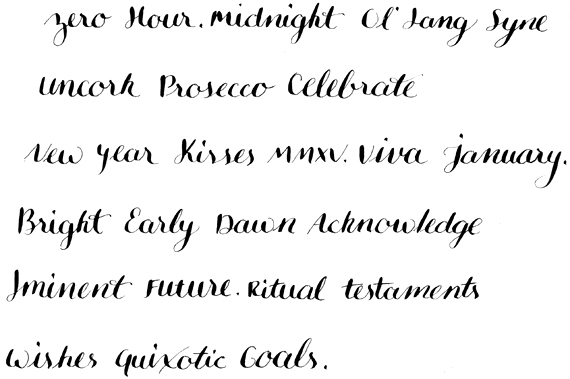 zero Hour. Midnight Ol' Lang Syne
Uncork Prosecco Celebrate
New Year Kisses MMXV. Viva January.
Bright Early Dawn Acknowledge
Iminent Future. Ritual testaments
Wishes Quixotic Goals.